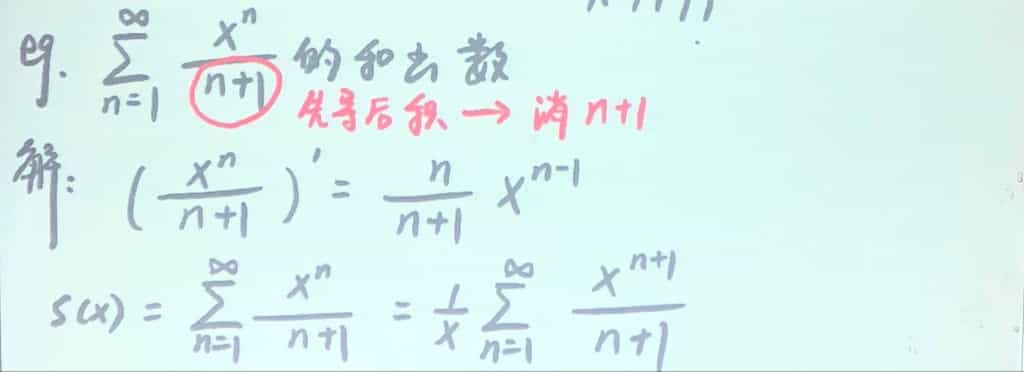 eg. ∑_{n=1}^{∞} x^n/(n+1) 的和函数
先导后积 → 消 n+1
解: (x^n/(n+1))' = n/(n+1) x^{n-1}
S(x) = ∑_{n=1}^{∞} x^n/(n+1) = 1/x ∑_{n=1}^{∞} x^{n+1}/(n+1)